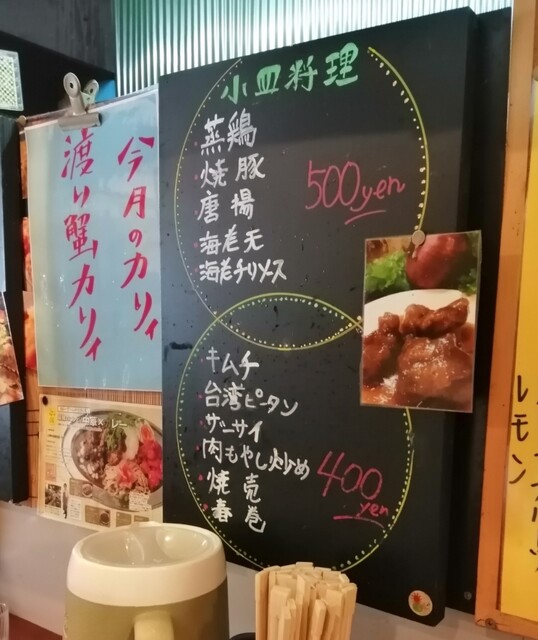 今月のカリィ
渡り蟹カリィ
小皿料理
蒸鶏
焼豚
唐揚
海老天
海老チリソース
500yen
キムチ
台湾ピータン
ザーサイ
肉もやし炒め
焼売
春巻
400
yen
レモン